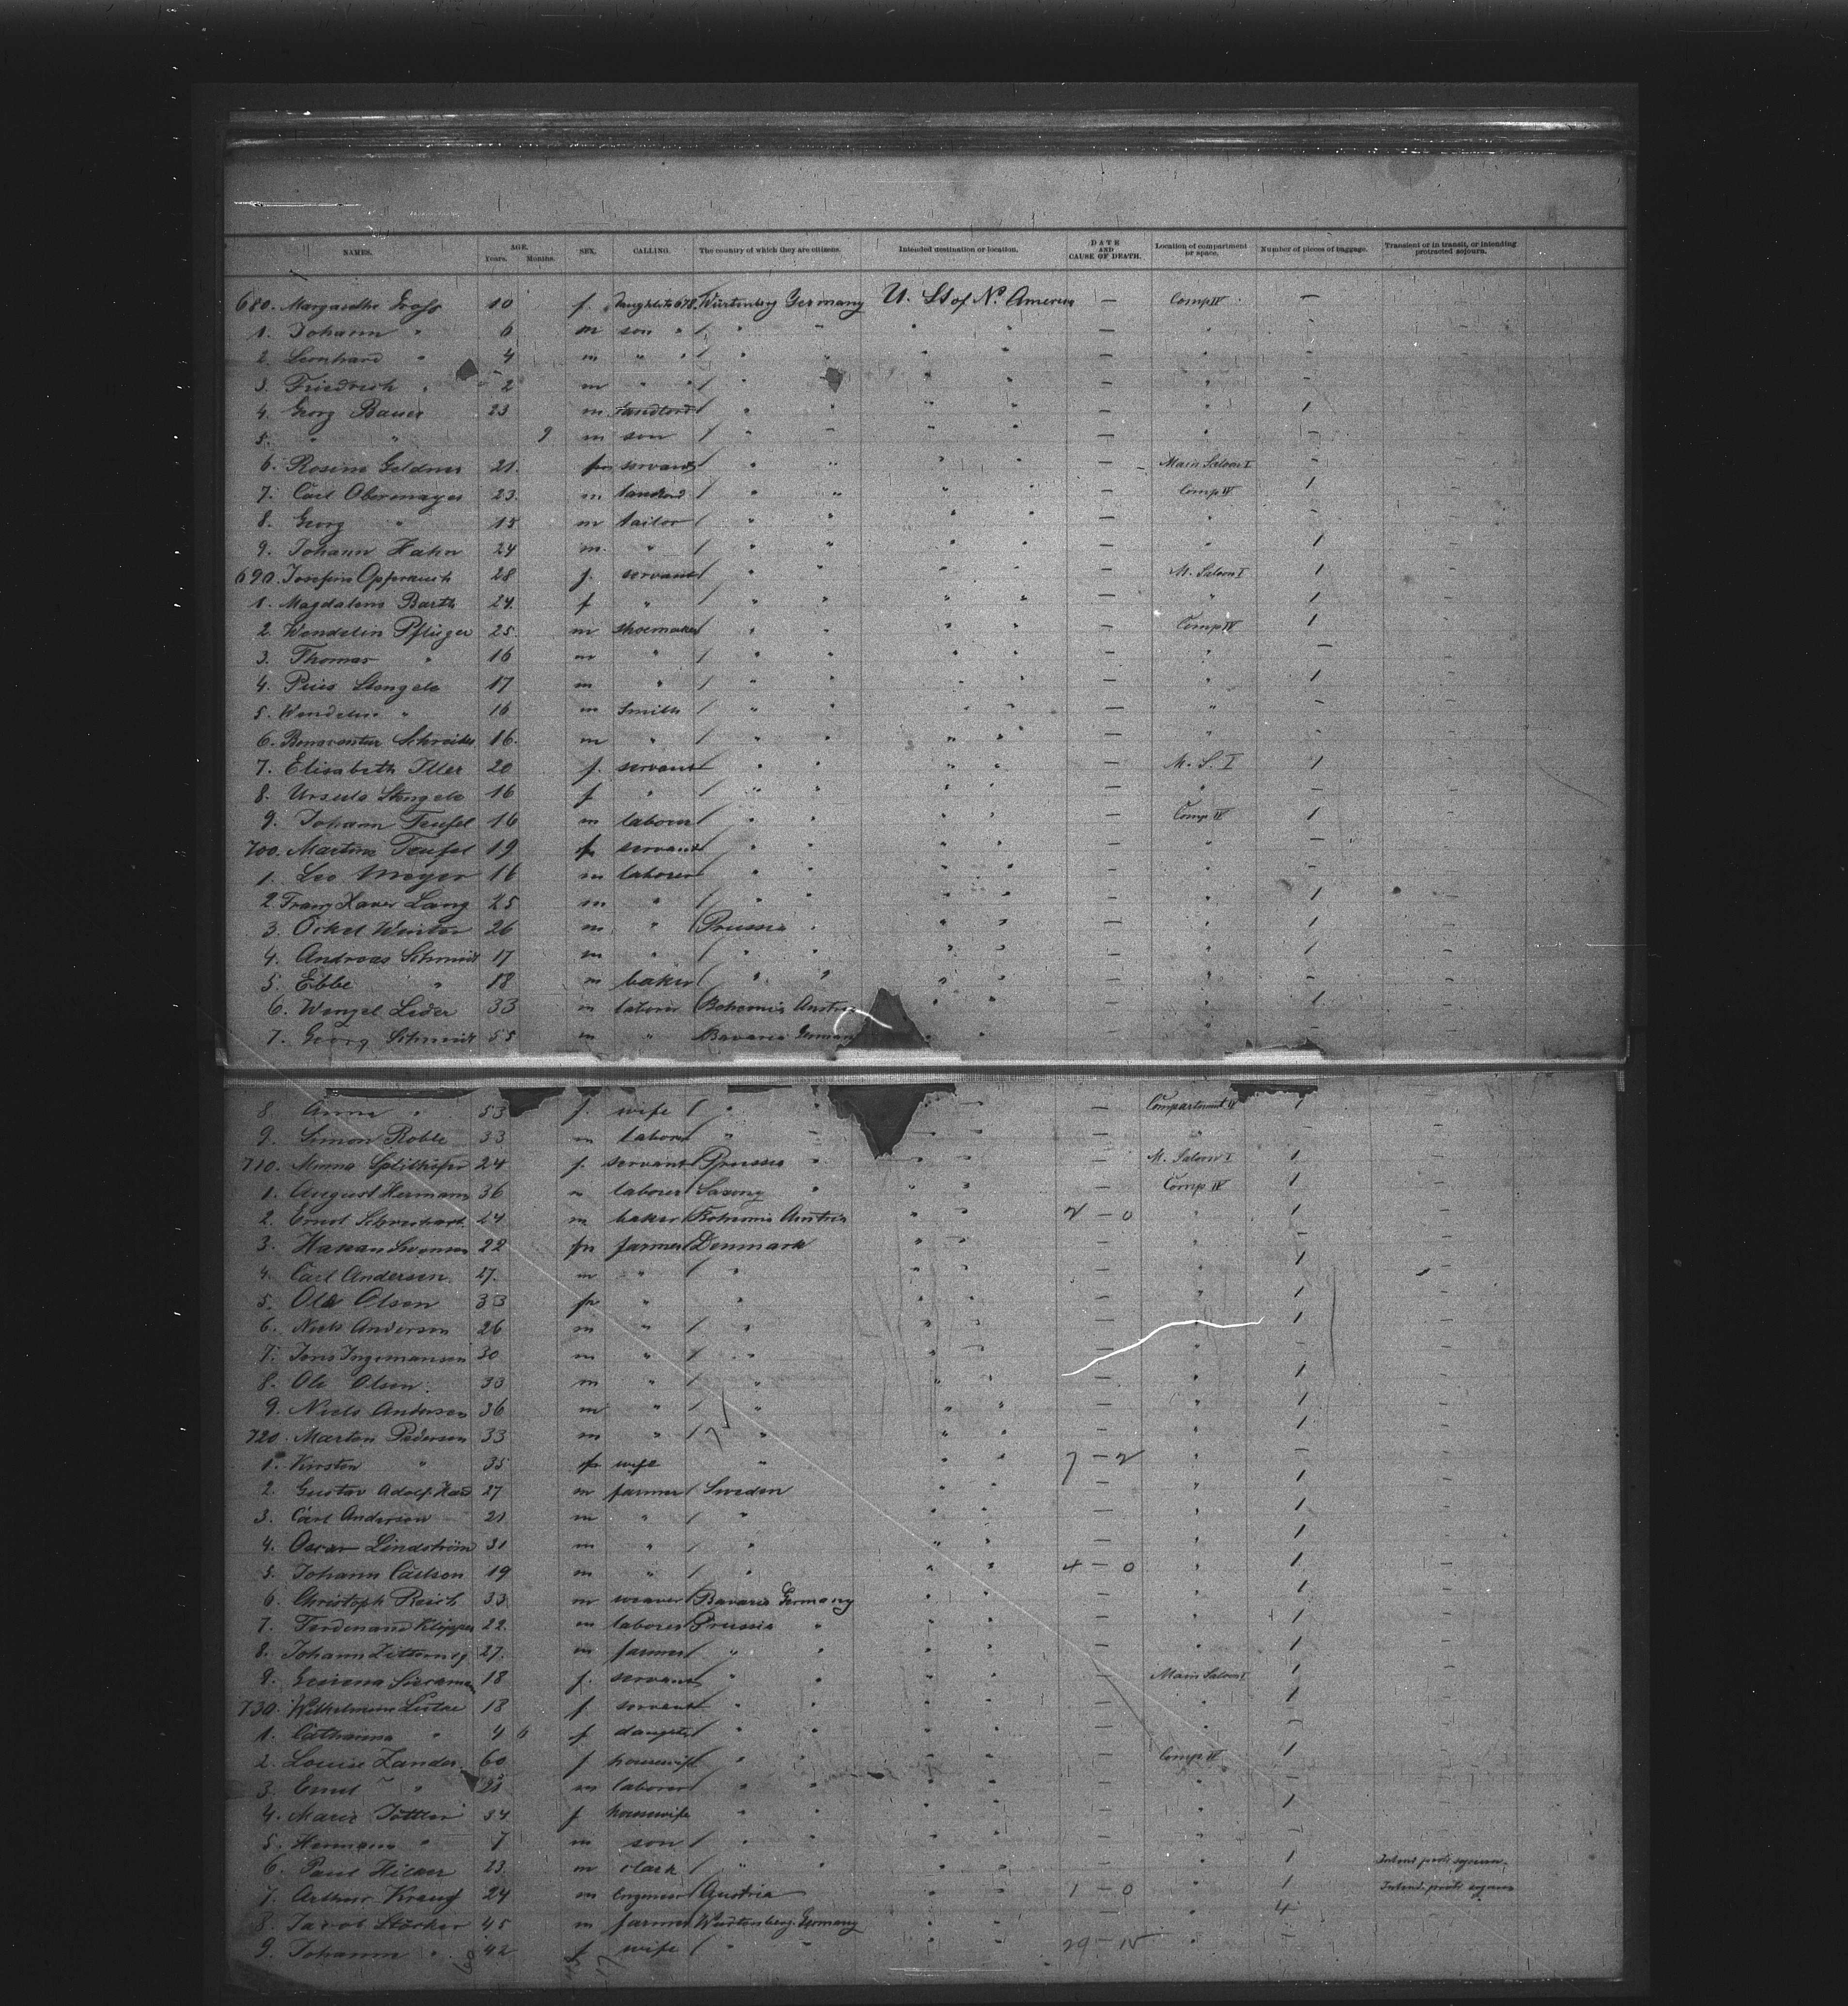 NAMES. AGE. Years. Months. SEX. CALLING. The country of which they are citizens. Intended destination or location. DATE AND CAUSE OF DEATH. Location of compartment or space. Number of pieces of baggage. Transient or in transit, or intending protracted sojourn.
680. Margarethe Gross 10 f. Daughter to 678. Würtenberg Germany U. St of No. America — Comp IV —
1. Johann " 6 m son " " " " " — " —
2. Leonhard " 4 m " " " " " " — " —
3. Friedrich " 2 m " " " " " " — " —
4. Georg Bauer 23 m " " " " — " 1
5. " " 9 m son " " " " — " —
6. Rosine Geldner 21. f servant " " " " — Main Saloon I —
7. Carl Obermayer 23. m " " " " — Comp IV 1
8. Georg " 15 m tailor " " " " — " —
9. Johann Hahn 24 m. " " " " " — " 1
690. Josefine 28 f. servant " " " " — M. Saloon I 1
1. Magdalena Barth 24. f " " " " " — " 1
2. Wendelin Pflüger 25. m shoemaker " " " " — Comp IV 1
3. Thomas " 16 m " " " " " — " —
4. Pius Stengele 17 m " " " " " — " 1
5. Wendelin " 16 m Smith " " " " — " —
6. Bonaventur Schneider 16. m " " " " " — " —
7. Elisabeth Iller 20 f. servant " " " " — M. S. I 1
8. Ursula Stengele 16 f " " " " " — " —
9. Johann Teufel 16 m laborer " " " " — Comp IV 1
700. Martina Teufel 19 f servant " " " " — " —
1. Leo Meyer 16 m laborer " " " " — " —
2. Franz Xaver Lang 25 m " " " " " — " 1
3. Winter 26 m " Prussia " " " — " 1
4. Andreas Schmidt 17 m " " " " " — " 1
5. Ebbe " 18 m baker " " " " — " —
6. Wenzel Leder 33 m laborer Bohemia Austria " " — " 1
7. Georg Schmidt 55 m " Bavaria Germany " " — " —
8. Anna " 53 f. wife " " " " — Compartment IV 1
9. Simon Roble 33 m laborer " " " " — " —
710. Minna 24 f. servant Prussia " " " — M. Saloon I 1
1. August Hermann 36 m laborer Saxony " " " — Comp IV 1
2. Ernst 24 m baker Bohemia Austria " " 2 — 0 " 1
3. Hakan Swenson 22 m farmer Denmark " " — " —
4. Carl Andersen 27. m " " " " — " 1
5. Ola Olson 33 m " " " " — " 1
6. Niels Andersen 26 m " " " " — " 1
7. Jons Ingemansen 30 m " " " " — " —
8. Ole Olson. 33 m " " " " — " 1
9. Niels Andersen 36 m " " " " — " 1
720. Marten Pedersen 33 m " " " " — " 1
1. Kirsten " 35 f wife " " " 7 — 2 " —
2. Gustav Adolf 27 m farmer Sweden " " — " 1
3. Carl Anderson 21 m " " " " — " 1
4. Oscar Lindström 31 m " " " " — " 1
5. Johann Carlson 19 m " " " " 4 — 0 " 1
6. Christoph Reich 33 m weaver Bavaria Germany " " — " 1
7. Ferdinand Klipper 22. m laborer Prussia " " " — " 1
8. Johann 27. m farmer " " " " — " 1
9. Gesiena 18 f. servant " " " " — Main Saloon I 1
730. Wilhelmine 18 f servant " " " " — " 1
1. Catharina " 4 6 f daughter " " " " — " —
2. Louise Zander 60 f housewife " " " " — Comp IV 1
3. Ernst " 21 m laborer " " " " — " —
4. Marie 34 f housewife " " " " — " 1
5. Hermann " 7 m son " " " " — " —
6. Paul Hilker 23. m clerk " " " " — " 1
7. Arthur 24 m Engineer Austria " " 1 — 0 " 1
8. Jacob Störker 45 m farmer Würtenberg Germany " " — " 4
9. Johanna " 42 f wife " " " " 29 — " —